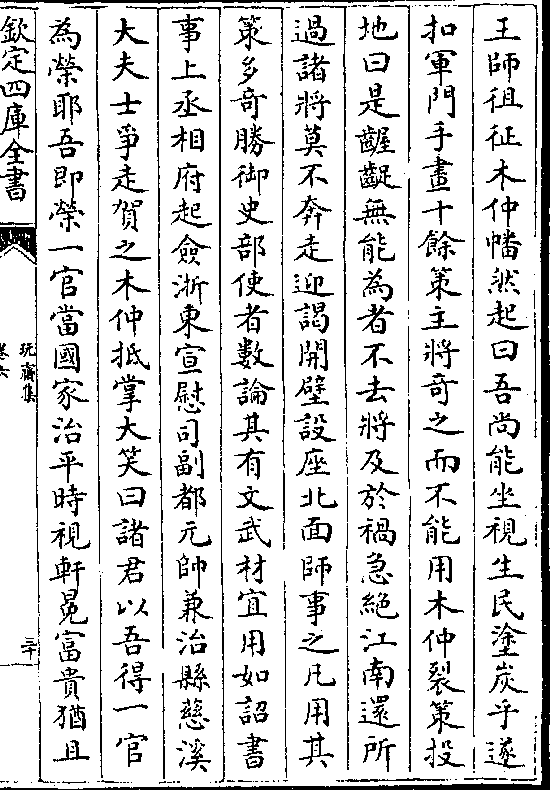 王師徂征木仲幡然起曰吾尚能坐視生民塗炭乎遂
扣軍門手畫十餘策主將奇之而不能用木仲裂策投
地曰是齷齪無能為者不去將及於禍急絶江南還所
過諸將莫不奔走迎謁開壁設座北面師事之凡用其
策多奇勝御史部使者數論其有文武材宜用如詔書
事上丞相府起僉浙東宣慰司副都元帥兼治縣慈溪
大夫士爭走賀之木仲抵掌大笑曰諸君以吾得一官
為榮耶吾即榮一官當國家治平時視軒冕富貴猶且
欽定四庫全書
玩齋集
卷六
三十